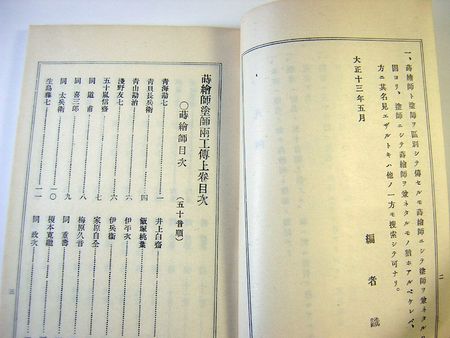 一、蒔繪師ト塗師ヲ區別シテ傳セルモ蒔繪師ニシテ塗師ヲ兼ネタル
固ヨリ、塗師ニシテ蒔繪師ヲ兼ネタルモノ猶ホアルベケレバ、
方ニ其名見エザルトキハ他ノ一方モ搜索シテ可ナリ。
大正十三年五月
編者識
二
蒔繪師塗師兩工傳上卷目次
〇蒔繪師目次(五十音順)
青海勘七……一
青貝長兵衞……四
青山勘治……
淺野友七……六
五十嵐信齋……六
同道甫……八
同喜三郎……九
同太兵衞……一〇
生島藤七……一一
井上白齋
飯塚桃葉
伊平次
伊兵衞
家原自全
梅原久音
同重壽
榎本寛
同政次
三